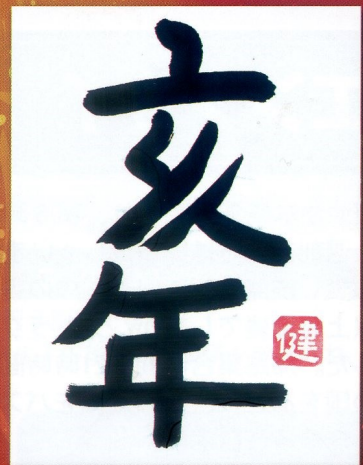 亥年
健